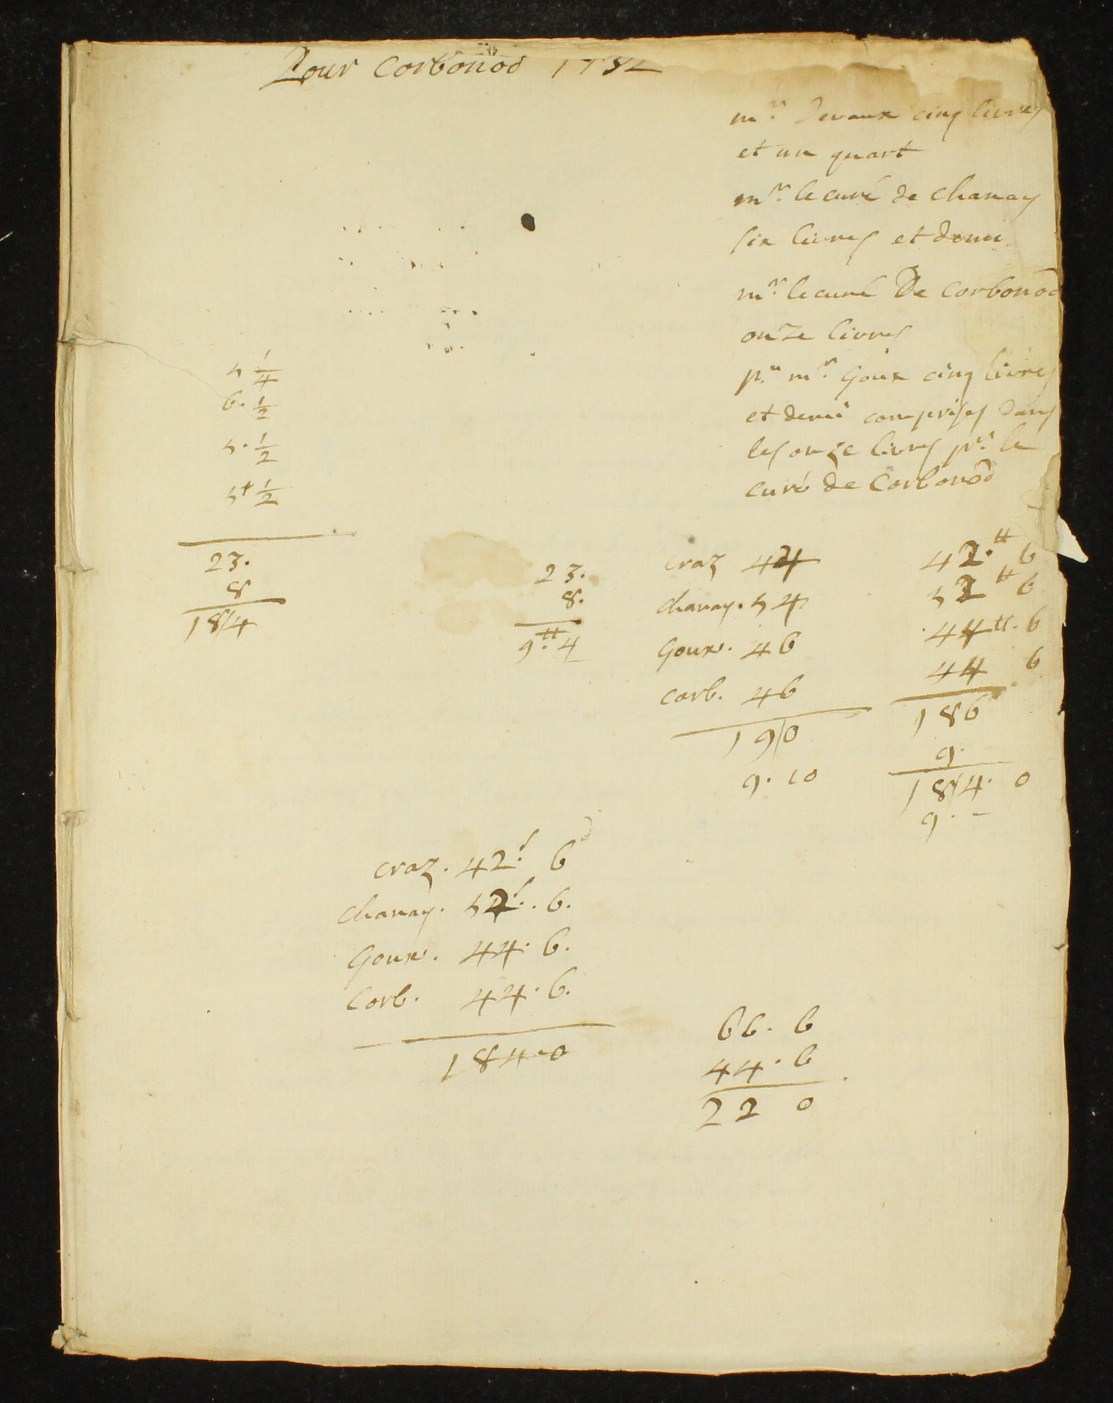 Pour Corbonod 1752
mr. Devaux cinq livres
et un quart
mr. le curé de Chanay
six livres et demi
mr. le curé De Corbonod
onze livres
pr. mr. Goux cinq livres
et demi comprises dans
les onze livres pr. le
curé de Corbonod
5 1/4
6. 1/2
5. 1/2
5 1/2
23.
8
184
23.
8.
9.₶ 4
craz 44
chanay. 54
Goux. 46
corb. 46
190
9. 10
42.₶ 6
52 ₶ 6
44₶. 6
44 6
186
9.
184. 0
9. -
craz. 42.s 6
chanay. 52s. 6.
Goux. 44. 6.
Corb. 44. 6.
184.0
66. 6
44. 6
22 0